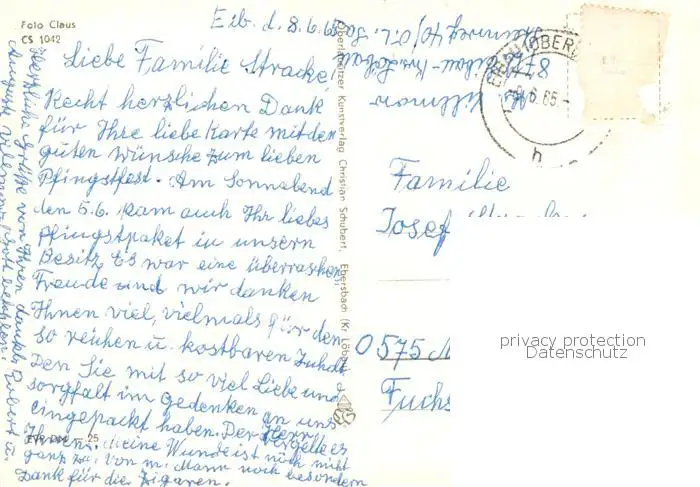 Foto Claus
CS 1042
Eib. d. 8.6.65
Liebe Familie Stracke!
Recht herzlichen Dank
für Ihre liebe Karte mit den
guten Wünsche zum lieben
Pfingstfest. Am Sonnabend
den 5.6. kam auch Ihr liebes
Pfingstpaket in unsern
Besitz Es war eine überraschen
Freude und wir danken
Ihnen viel, vielmals für den
so reichen u. kostbaren Inhalt
Den Sie mit so viel Liebe und
sorgfalt im Gedenken an uns
eingepackt haben. Der Herr
vergelte es
Ihnen. Meine Wunde ist noch nicht
ganz zu. Von m. Mann noch besondern
Dank für die Zigaren.
Herzliche Grüße von Ihren dankb. Hubert u.
EVP DM -.25
Oberlausitzer Kunstverlag Christian Schubert, Ebersbach (Kr. Löbau)
EIBAU (OBERL
6.65.-
h
Familie
Josef
0575
Fuchs
privacy protection
Datenschutz